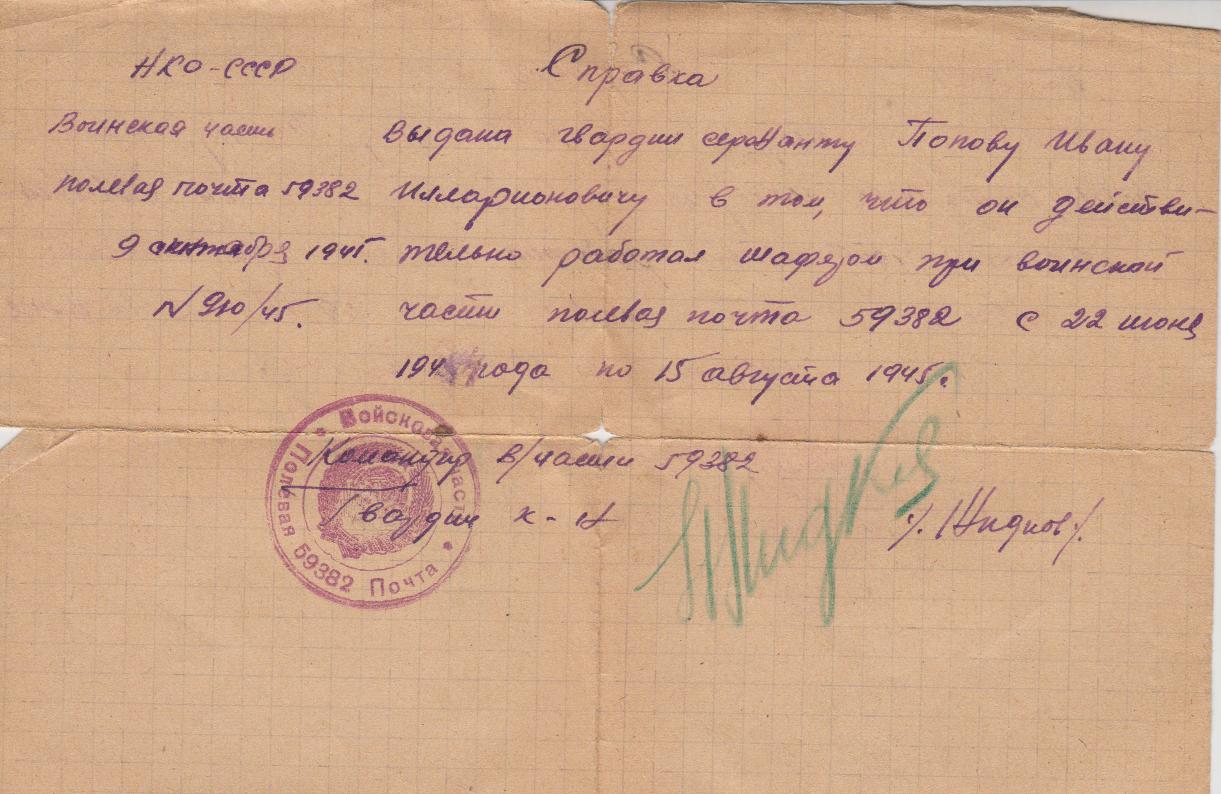 НКО-СССР
Справка
Воинская часть
полевая почта 59382
9 сентября 1945г.
N 910/45.
Выдана гвардии сержанту Попову Ивану
Илларионовичу в том, что он действи-
тельно работал шафером при воинской
части полевая почта 59382 с 22 июня
194 года по 15 августа 1945г.
Командир в/части 59382
Гвардии к-н
/. Жидков /.
Войсковая часть • Полевая 59382 Почта •